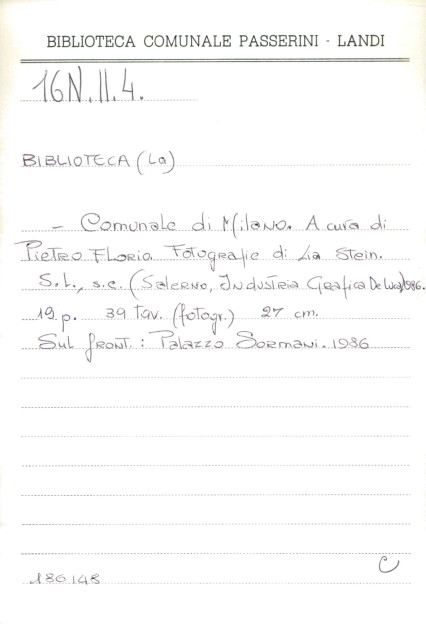 BIBLIOTECA COMUNALE PASSERINI - LANDI
16N.II.4.
BIBLIOTECA (La)
- Comunale di Milano. A cura di
Pietro Florio. Fotografie di Lia Stein.
S.l., s.e. (Salerno, Industria Grafica De Luca) 1986.
19 p. 39 tav. (fotogr.) 27 cm.
Sul front.: Palazzo Sormani. 1986
186148
C